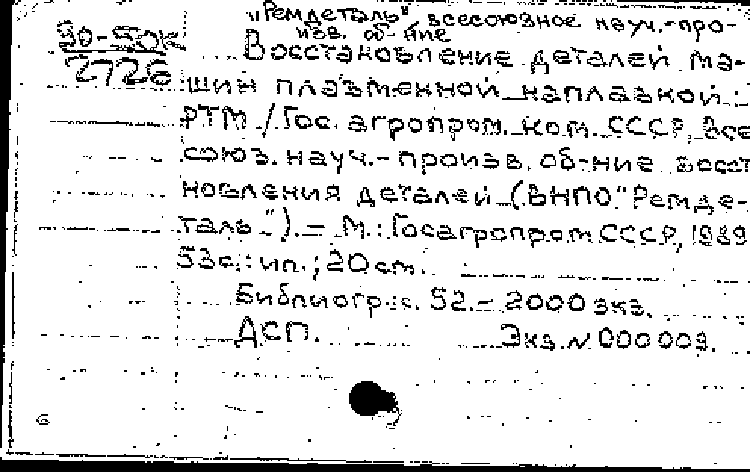 "Ремдеталь" всесоюзное науч.-про-
изв. об-ние
90-50к
2726
Восстановление деталей ма-
шин плазменной наплавкой:
РТМ / Гос. агропром. ком. СССР, Все
союз. науч.-произв. об-ние восст
новления деталей (ВНПО "Ремде-
таль"). – М.: Госагропром СССР, 1989
53с.: ил.; 20 см.
Библиогр.: с. 52. – 2000 экз.
ДСП. Экз. № 000009.
6